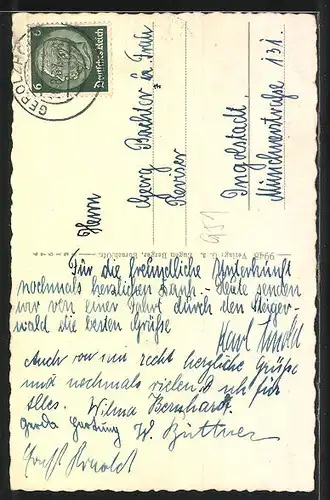 GEROLZHO
6 Deutsches Reich 6
Herrn
Georg
Revisor
Ingolstadt
Münchnerstraße 131.
G51
9945 Verlag: G. A. Eugen Berger,
Für die freundliche Unterkunft
nochmals herzlichen Dank. Heute senden
wir von einer Fahrt durch den Steiger-
wald die besten Grüße
Karl
Auch von mir recht herzliche Grüße
und nochmals vielen Dank für
Alles. Wilma Bernhardt.
Gerda Hartung W. Büttner
Arnold